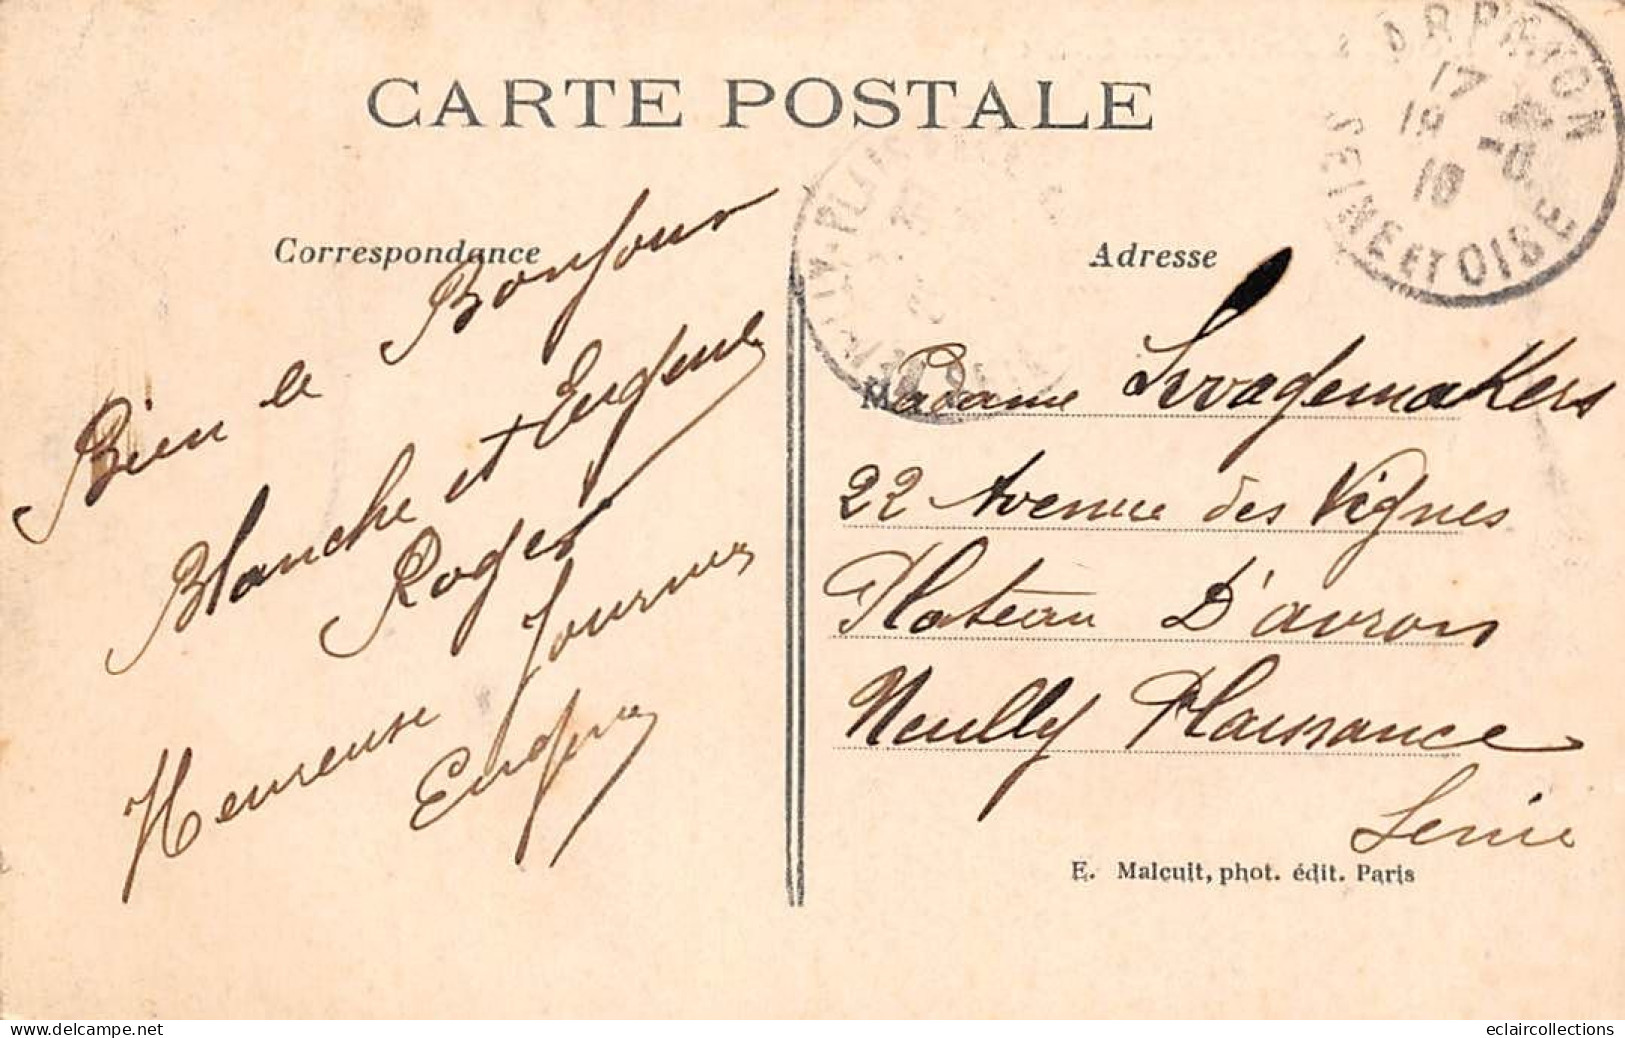 CARTE POSTALE
ARPAJON
17
19
10
SEINE ET OISE
Correspondance
Adresse
Bien le Bonjour
Blanche et Eugene
Roger
Heureuse Journee
Eugene
Madame
22 Avenue des Vignes
Plateau D'avron
Neuilly Plaisance
Seine
E. Malcuit, phot. édit. Paris
www.delcampe.net
eclaircollections